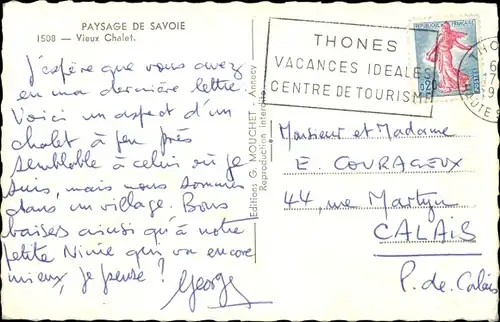 PAYSAGE DE SAVOIE
1508 — Vieux Chalet.
J'espère que vous avez
eu ma dernière lettre
Voici un aspect d'un
chalet à peu près
semblable à celui où je
suis, mais nous sommes
dans un village. Bons
baises ainsi qu'à notre
petite Ninie qui va encore
mieux, je pense ?
Georges
Editions G. MOUCHET - Annecy
Reproduction interdite
THONES
VACANCES IDEALES
CENTRE DE TOURISME
REPUBLIQUE FRANÇAISE
0,20
THO
6
9
HAUTE S
Monsieur et Madame
E. COURAGEUX
44, rue Martyn
CALAIS
P. de Calais